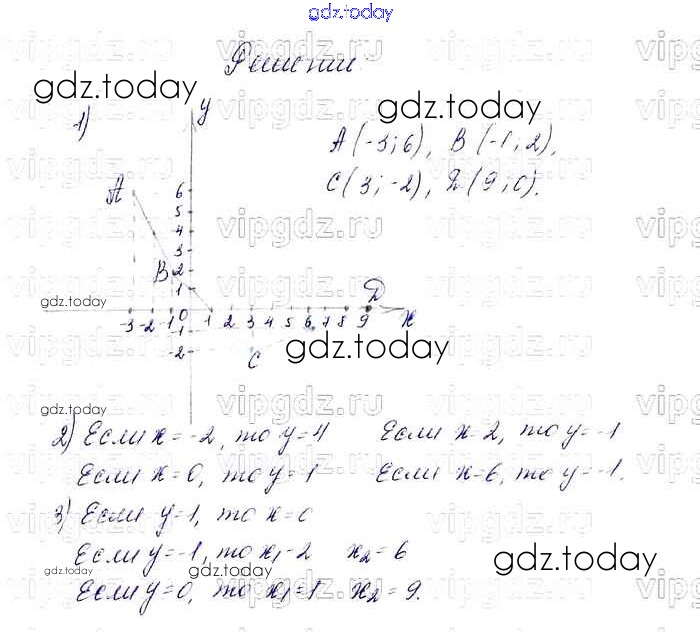 gdz.today
Решение
gdz.today
gdz.today
1)
y
A(-3;6), B(-1;2),
C(3;-2), D(9;0).
A
6
5
4
3
B 2
1
gdz.today
D
-3 -2 -1 0 1 2 3 4 5 6 7 8 9 x
-1
-2
C
gdz.today
gdz.today
2) Если x=-2, то y=4 Если x=2, то y=-1
Если x=0, то y=1 Если x=6, то y=-1.
3) Если y=1, то x=0
Если y=-1, то x₁=2 x₂=6
gdz.today
gdz.today
gdz.today
Если y=0, то x₁=1 x₂=9.
vipgdz.ru